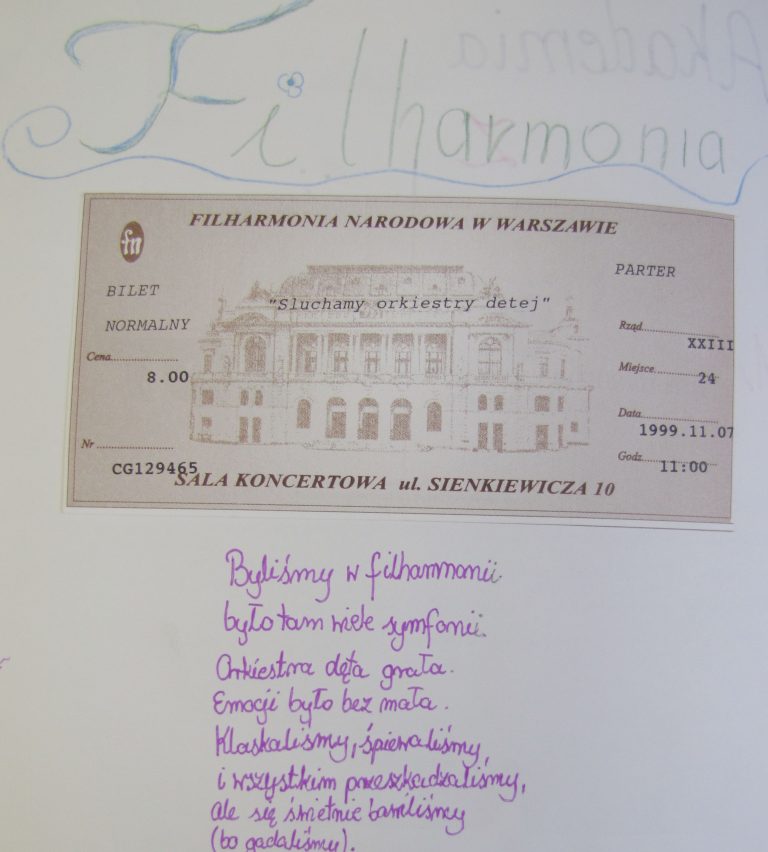 Akademia
Filharmonia
fn
FILHARMONIA NARODOWA W WARSZAWIE
BILET
NORMALNY
Cena
8.00
Nr
CG129465
"Sluchamy orkiestry detej"
PARTER
Rząd
XXIII
Miejsce
24
Data
1999.11.07
Godz.
11:00
SALA KONCERTOWA ul. SIENKIEWICZA 10
Byliśmy w filharmonii
było tam wiele symfonii.
Orkiestra dęta grała.
Emocji było bez mała.
Klaskaliśmy, śpiewaliśmy,
i wszystkim przeszkadzaliśmy,
ale się świetnie bawiliśmy
(bo gadaliśmy).